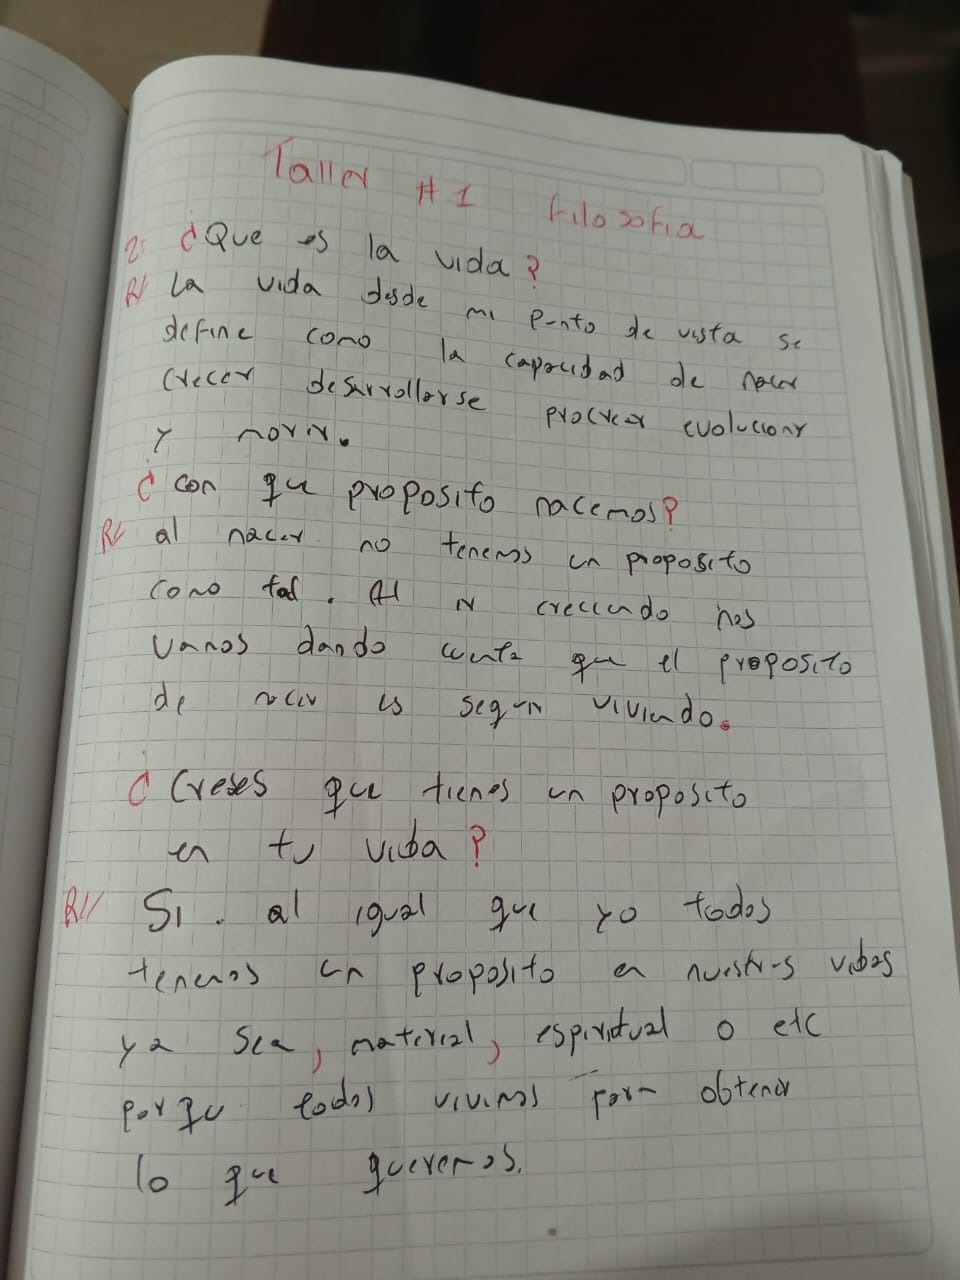 Taller #1 Filosofia
2: ¿Que es la vida?
R/ La vida desde mi punto de vista se
define como la capacidad de nacer
crecer desarrollarse procrear evolucionr
y morir.
¿con que proposito nacemos?
R/ al nacer no tenemos un proposito
como tal. Al ir creciendo nos
vamos dando cuenta que el proposito
de nacer es seguir viviendo.
¿Creses que tienes un proposito
en tu vida?
R// Si. al igual que yo todos
tenemos un proposito en nuestras vidas
ya sea, material, espiritual o etc
porqu todos vivimos para obtener
lo que queremos.